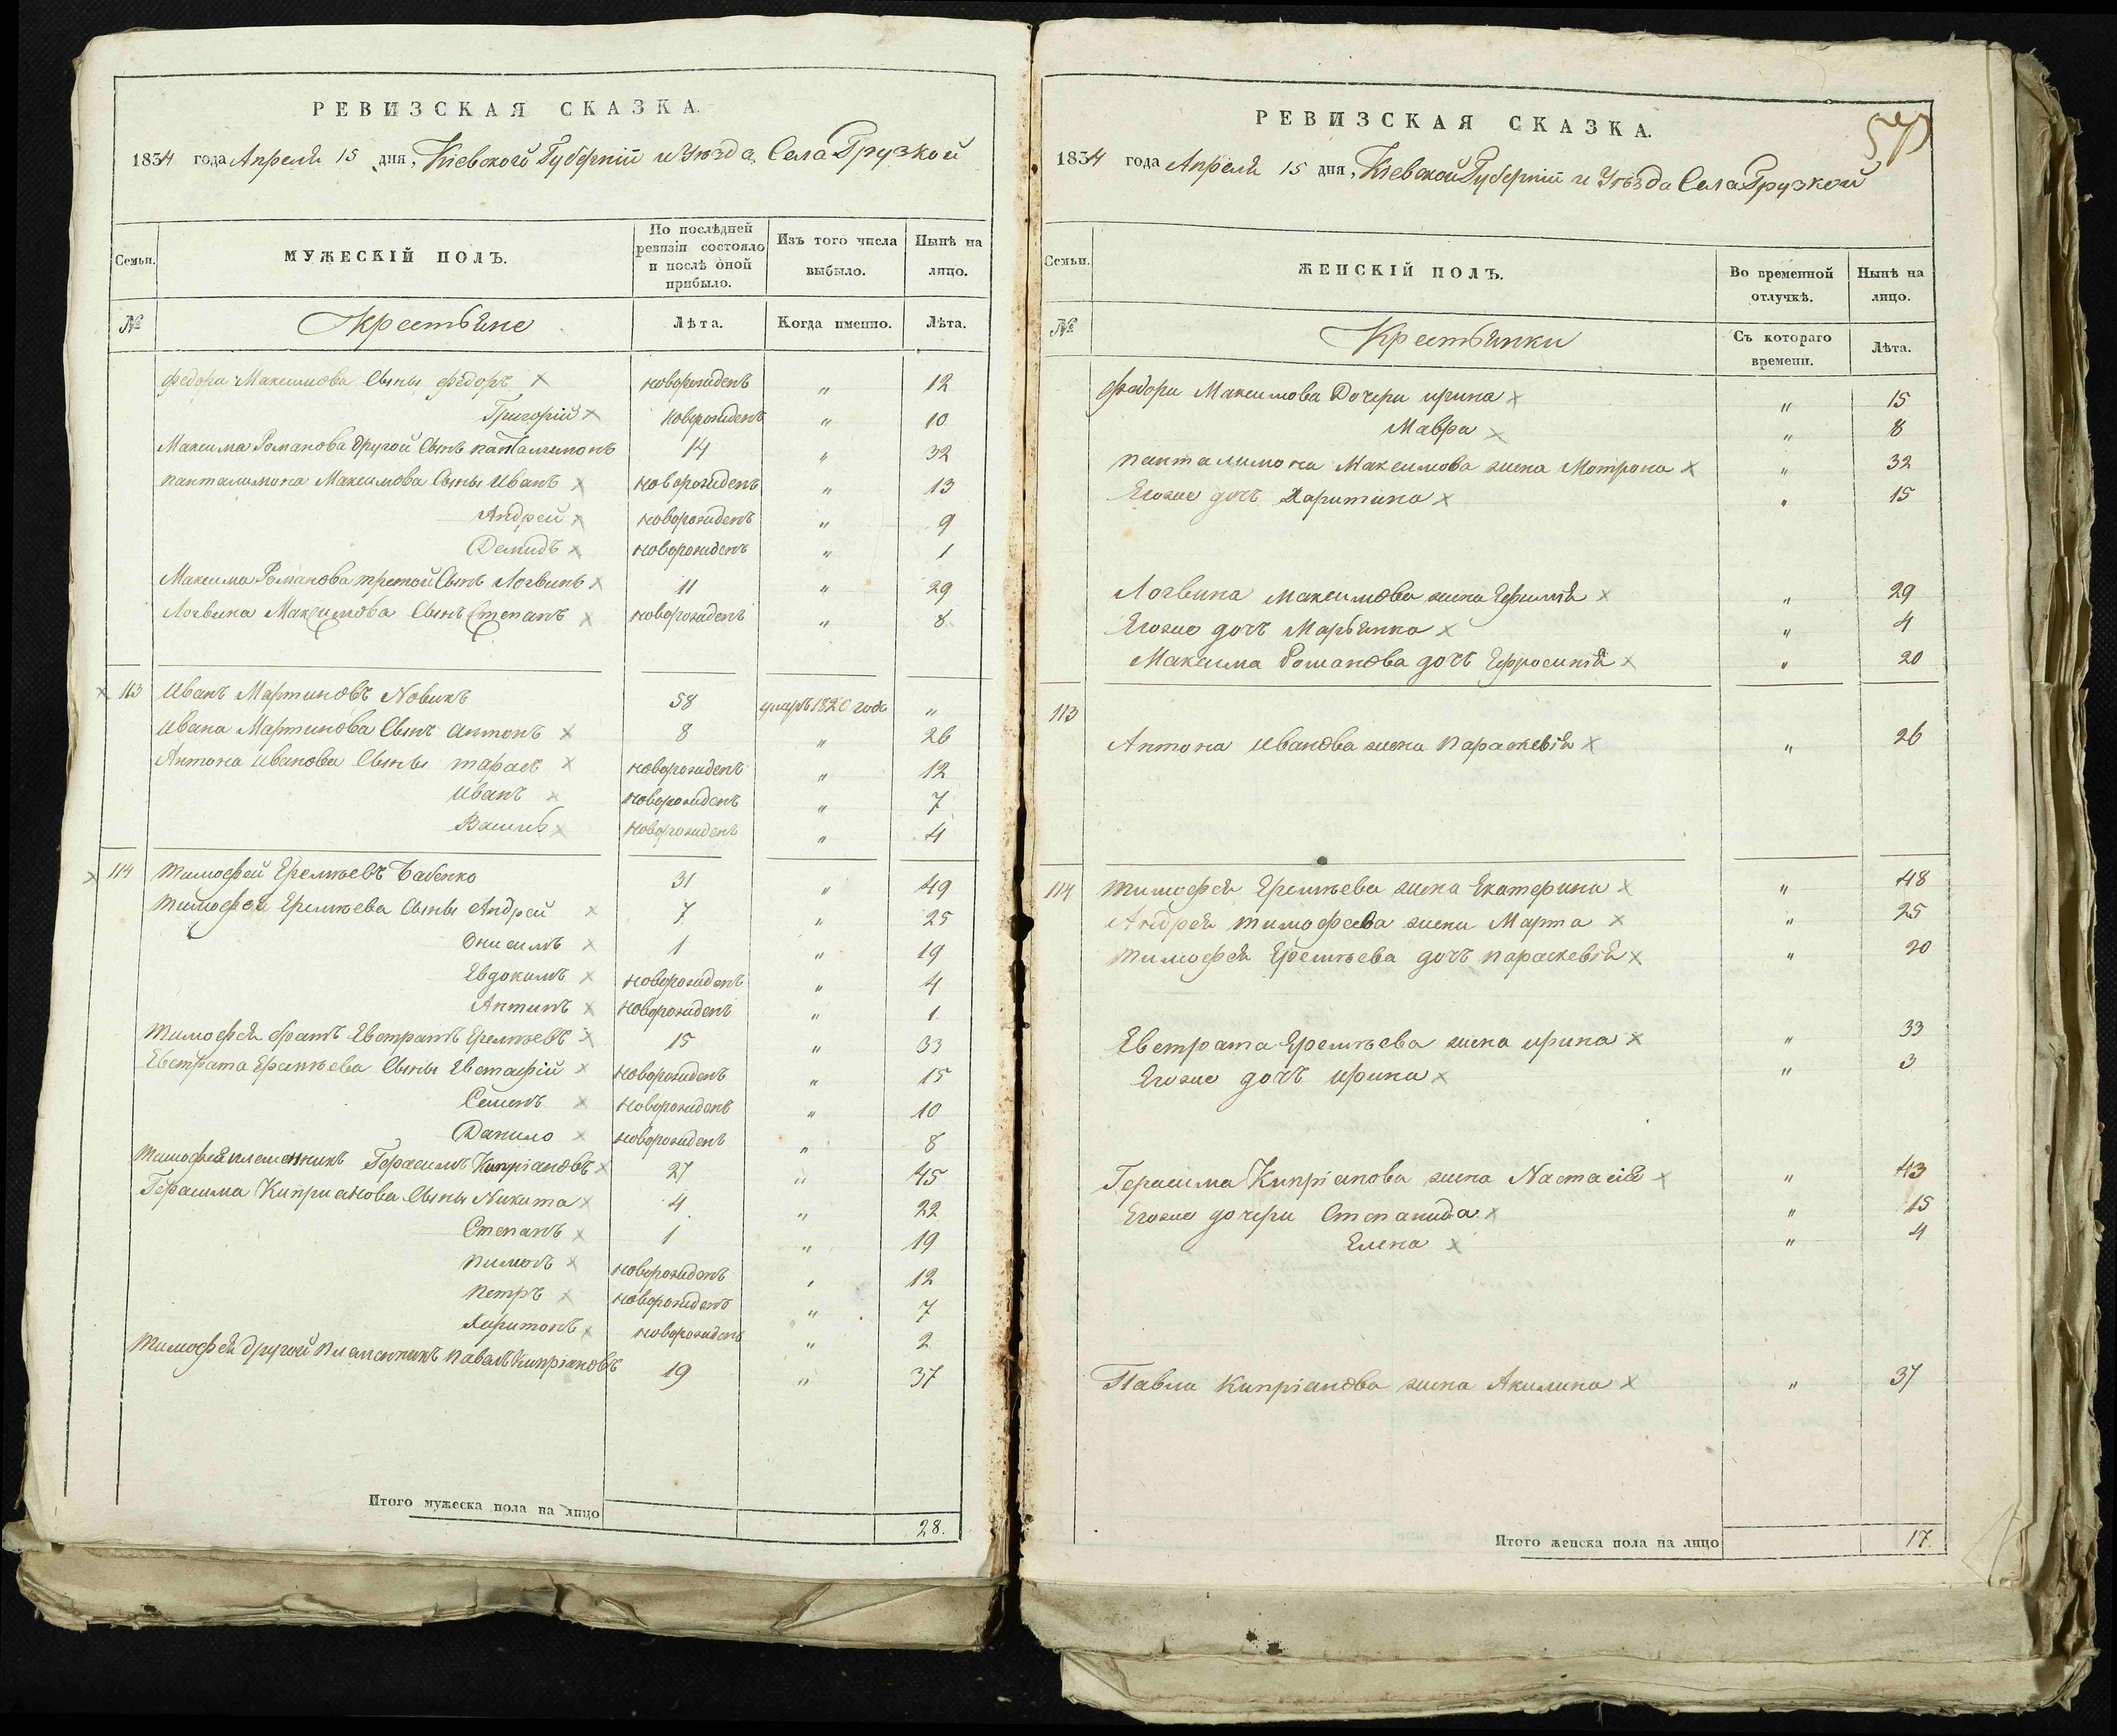 РЕВИЗСКАЯ СКАЗКА.
1834 года Апреля 15 дня, Кіевской Губерніи и Уѣзда Села Грузкой
Семьи.
МУЖЕСКІЙ ПОЛЪ.
По послѣдней ревизіи состояло и послѣ оной прибыло.
Изъ того числа выбыло.
Нынѣ на лицо.
№ Крестьяне Лѣта. Когда именно. Лѣта.
Федора Максимова Сыны федоръ новорожденъ " 12
Григорій новорожденъ " 10
Максима Романова другой Сынъ панталимонъ 14 " 32
панталимона Максимова Сыны Иванъ новорожденъ " 13
Андрей новорожденъ " 9
Демидъ новорожденъ " 1
Максима Романова третой Сынъ Логвинъ 11 " 29
Логвина Максимова Сынъ Степанъ новорожденъ " 8
113 Иванъ Мартиновъ Новикъ 58 умеръ 1820 года "
Ивана Мартинова Сынъ Антонъ 8 " 26
Антона Иванова Сыны тарасъ новорожденъ " 12
Иванъ новорожденъ " 7
Василь новорожденъ " 4
114 тимофей Еремѣевъ Бабенко 31 " 49
тимофея Еремѣева Сыны Андрей 7 " 25
Онисимъ 1 " 19
Евдокимъ новорожденъ " 4
Антипъ новорожденъ " 1
тимофея братъ Евстратъ Еремѣевъ 15 " 33
Евстрата Еремѣева Сыны Евстафій новорожденъ " 15
Семенъ новорожденъ " 10
Данило новорожденъ " 8
тимофея племенникъ Герасимъ Кипріановъ 27 " 45
Герасима Киприанова Сыны Никита 4 " 22
Степанъ 1 " 19
пимонъ новорожденъ " 12
петръ новорожденъ " 7
Харитонъ новорожденъ " 2
тимофея другой племенникъ павелъ Кипріановъ 19 " 37
Итого мужеска пола на лицо 28.
РЕВИЗСКАЯ СКАЗКА.
1834 года Апреля 15 дня, Кіевской Губерніи и Уѣзда Села Грузкой
Семьи.
ЖЕНСКІЙ ПОЛЪ.
Во временной отлучкѣ.
Нынѣ на лицо.
№ Крестьянки Съ котораго времени. Лѣта.
Федора Максимова Дочери ирина " 15
Мавра " 8
панталимона Максимова жена Мотрона " 32
Егоже дочъ Харитина " 15
Логвина Максимова жена Ефимія " 29
Егоже дочъ Марьянна " 4
Максима Романова дочъ Ефросинія " 20
113
Антона Иванова жена параскевія " 26
114 тимофея Еремѣева жена Екатерина " 48
Андрея тимофеева жена Марта " 25
тимофея Еремѣева дочъ параскевія " 20
Евстрата Еремѣева жена ирина " 33
Егоже дочъ ирина " 3
Герасима Кипріанова жена Настасія " 43
Егоже дочери Степанида " 15
Елена " 4
Павла Кипріанова жена Акилина " 37
Итого женска пола на лицо 17.